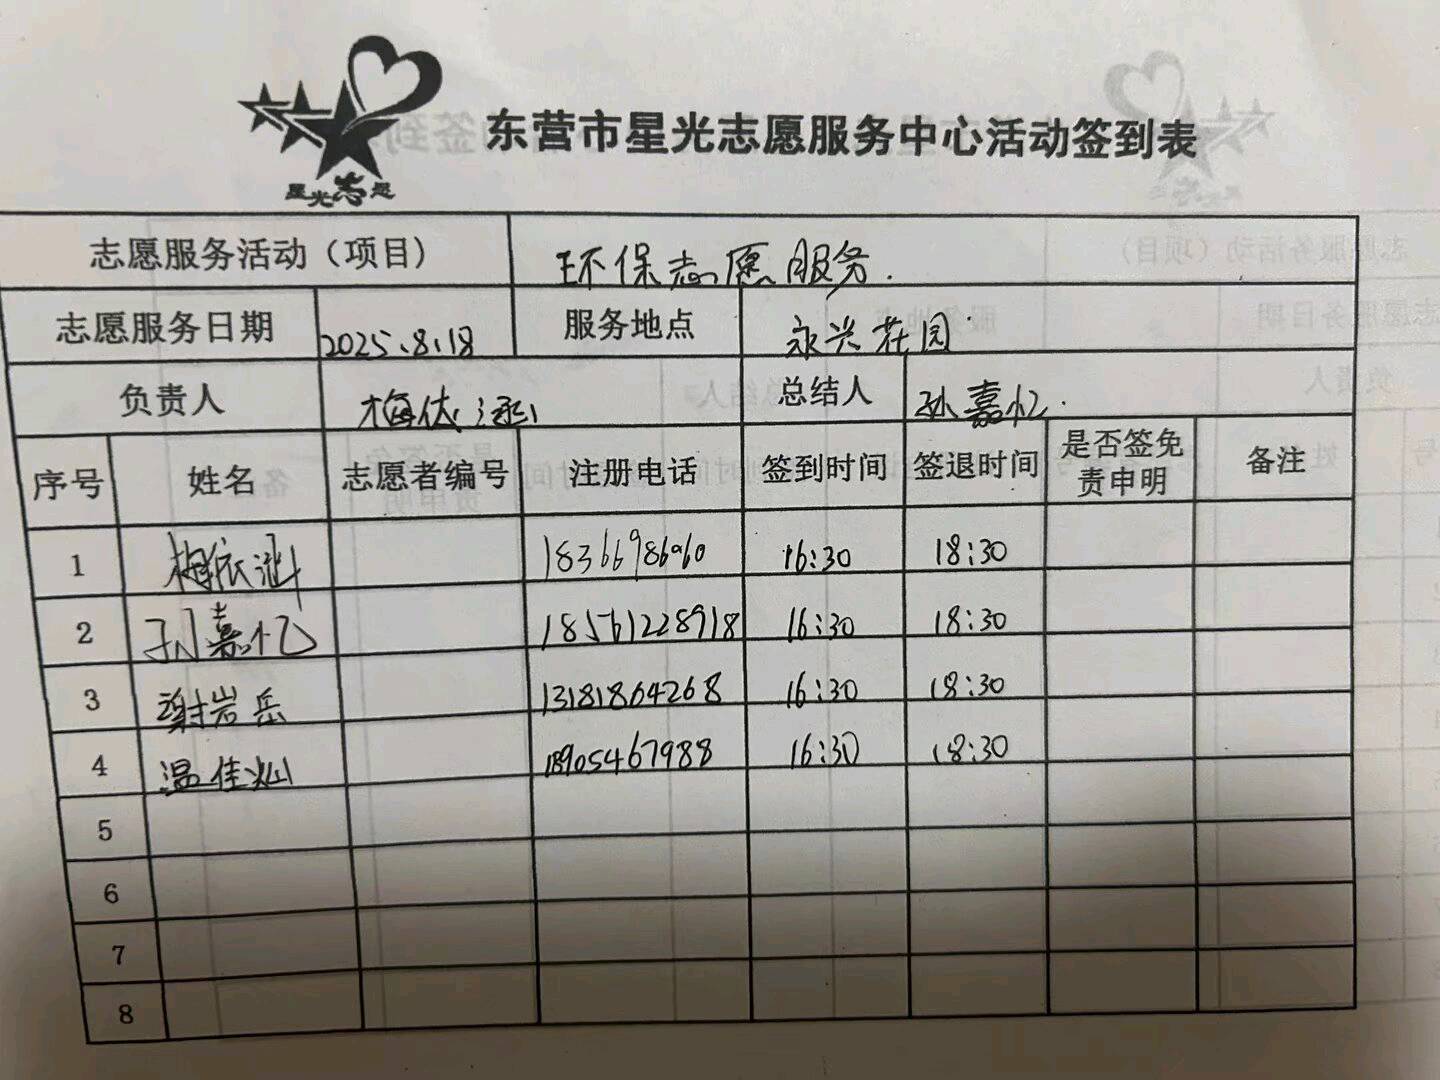 星光志愿
东营市星光志愿服务中心活动签到表
志愿服务活动（项目） 环保志愿服务.
志愿服务日期 2025.8.18 服务地点 永兴花园
负责人 梅依涵 总结人 孙嘉忆.
序号 姓名 志愿者编号 注册电话 签到时间 签退时间 是否签免责申明 备注
1 梅依涵 16:30 18:30
2 孙嘉忆 18561228918 16:30 18:30
3 谢岩岳 13181864268 16:30 18:30
4 温佳灿 18905467988 16:30 18:30
5
6
7
8